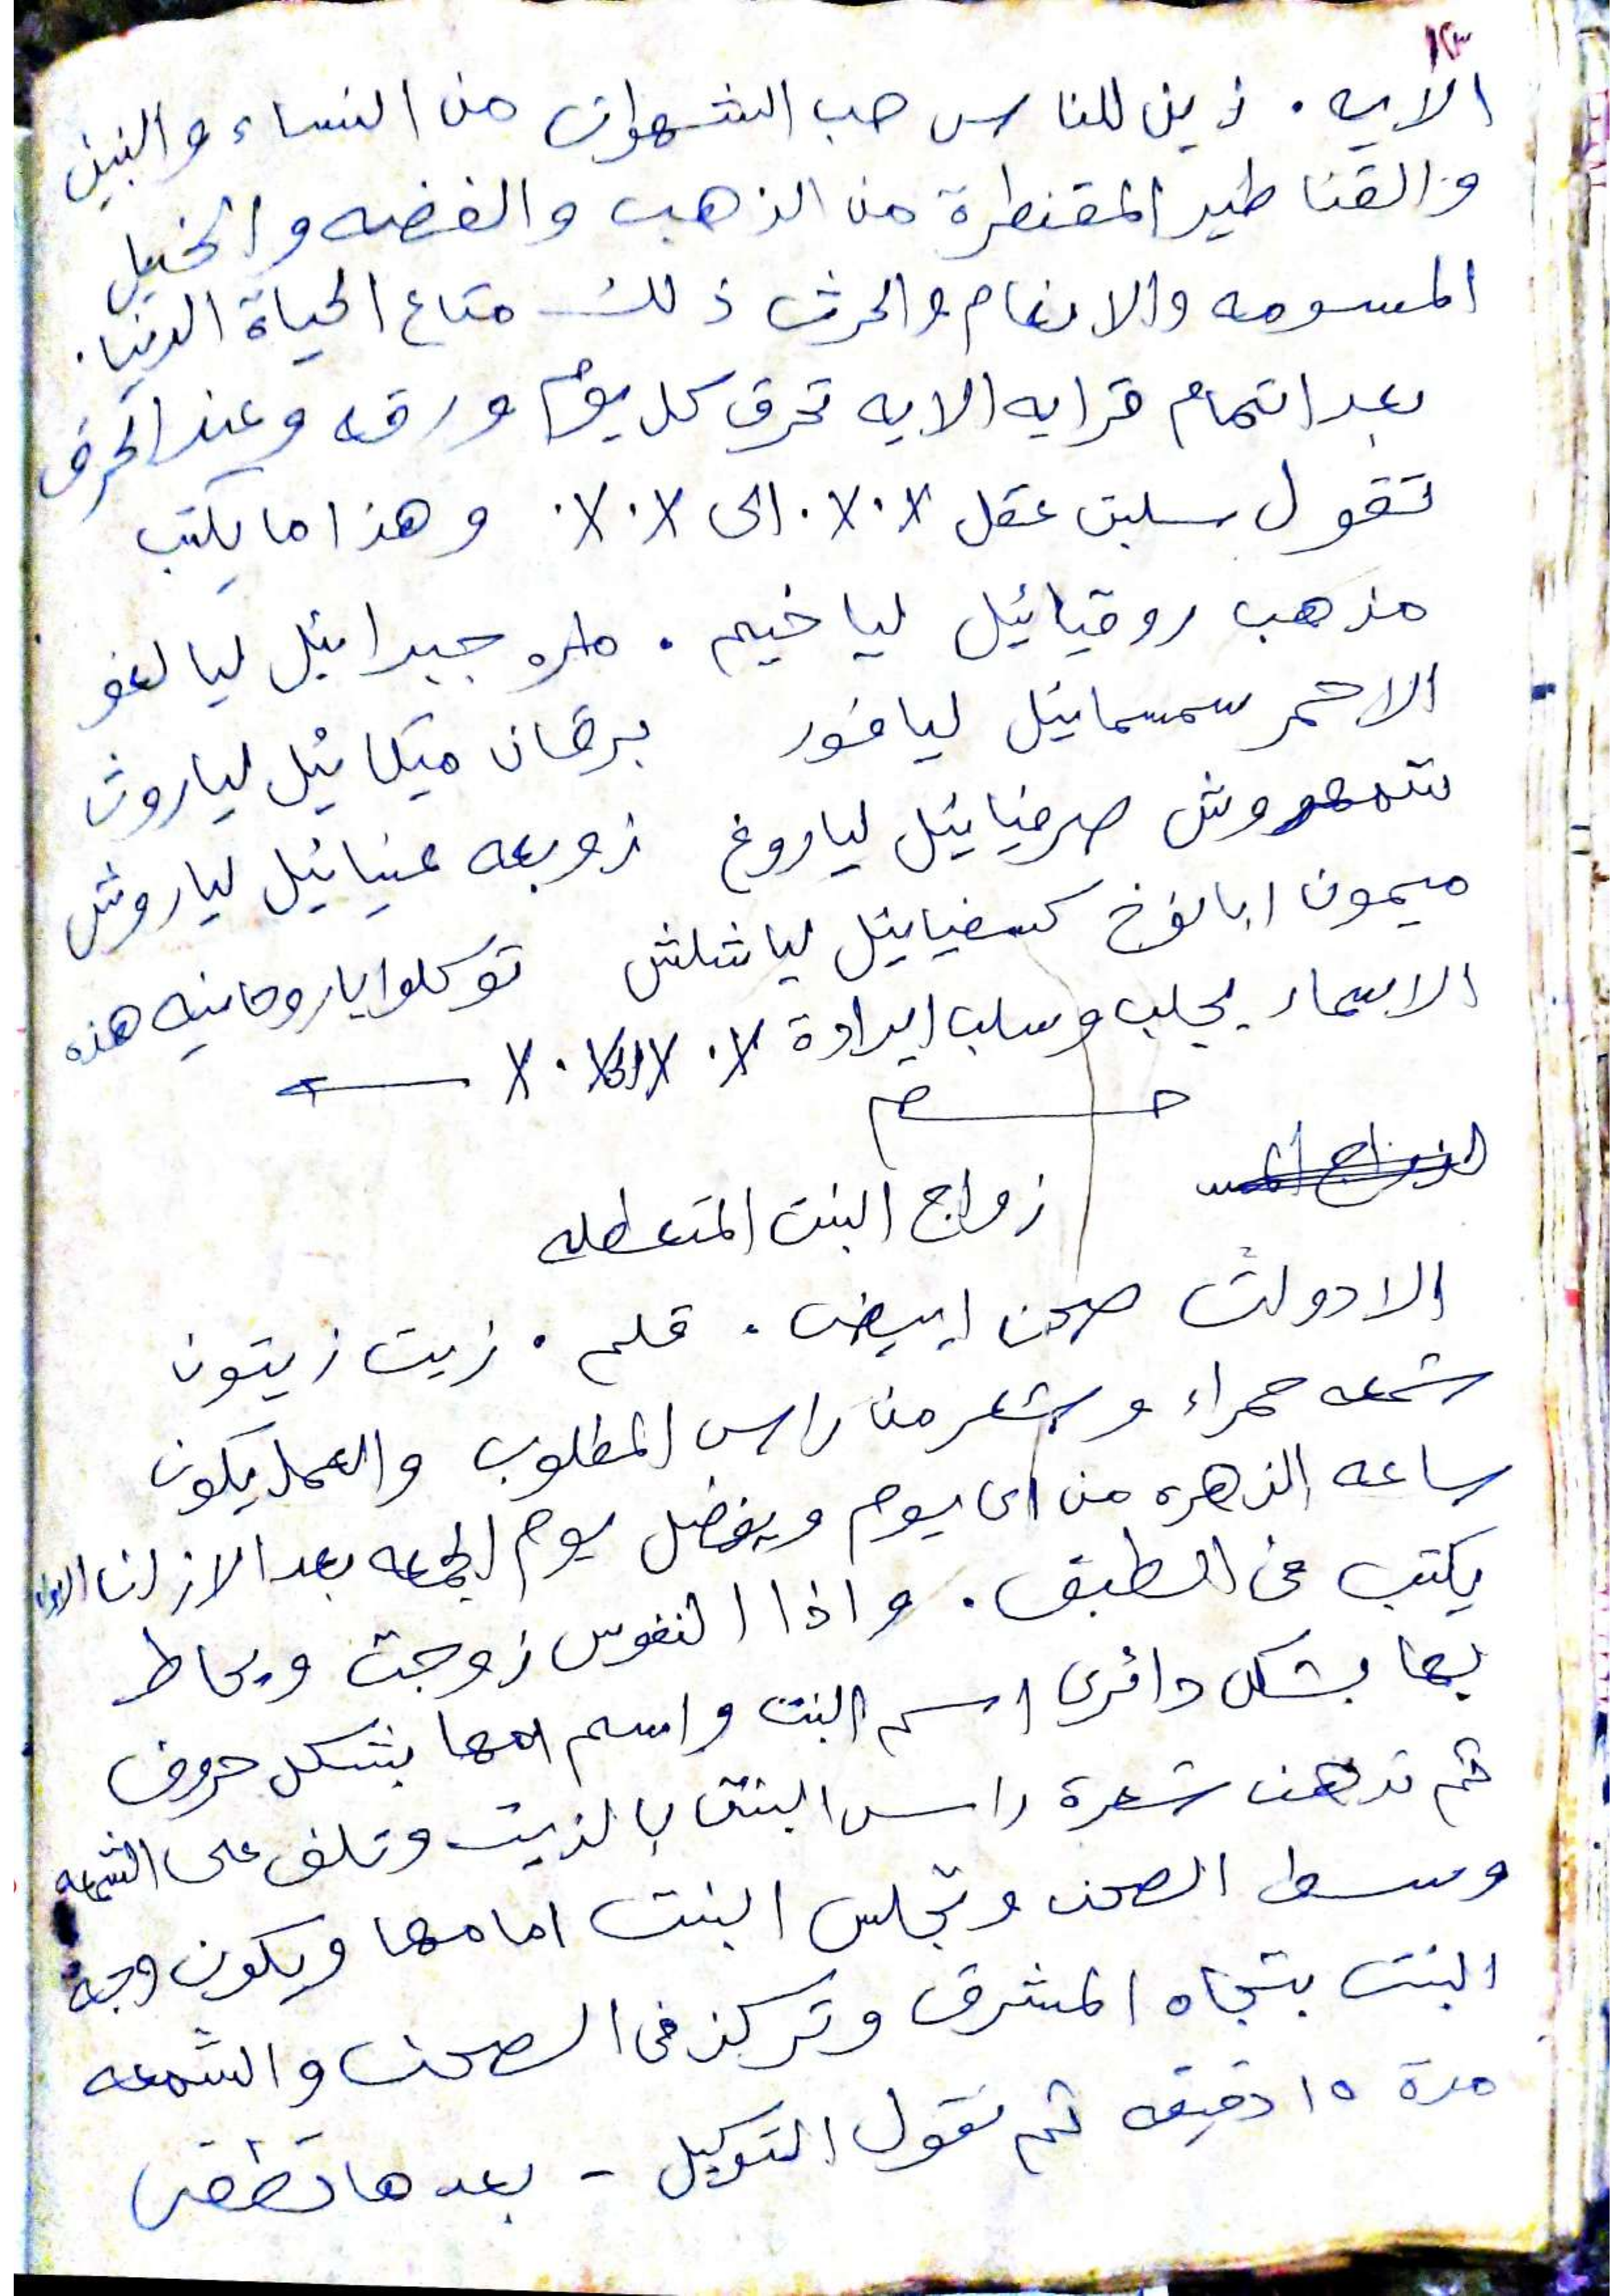 ١٢٣
الايه . زين للناس حب الشهوات من النساء والبنين
والقناطير المقنطرة من الذهب والفضه والخيل
المسومه والانعام والحرث ذلك متاع الحياة الدنيا .
بعد اتمام قرايه الايه تحرق كل يوم ورقه وعند الحرق
تقول سلبت عقل ٪ ٪ الى ٪ ٪ وهذا ما يكتب
مذهب روقيائيل لياخيم . مره جبرائيل ليالغو
الاحمر سمسمائيل ليافور برقان ميكائيل لياروث
شمهروش صرفيائيل لياروغ زوبعه عنيائيل لياروش
ميمون ابانوخ كسفيائيل لياشلش توكلوا ياروحانيه هذه
الاسماء بجلب وسلب ايرادة ٪ ٪ الى ٪ ٪
زواج البنت المتعطله
الادوات صحن ابيض . قلم . زيت زيتون
شمعه حمراء وشعر من راس المطلوب والعمل يكون
ساعه الزهره من اى يوم ويفضل يوم الجمعه بعد الاذان الاول
يكتب فى الطبق . واذا النفوس زوجت ويحاط
بها بشكل دائرى اسم البنت واسم امها بشكل حروف
ثم تدهن شعرة راس البنت بالزيت وتلف على الشمعه
وسط الصحن وتجلس البنت امامها ويكون وجه
البنت بتجاه المشرق وتركز فى الصحن والشمعه
مدة ١٥ دقيقه ثم تقول التوكيل - بعدها تطفى